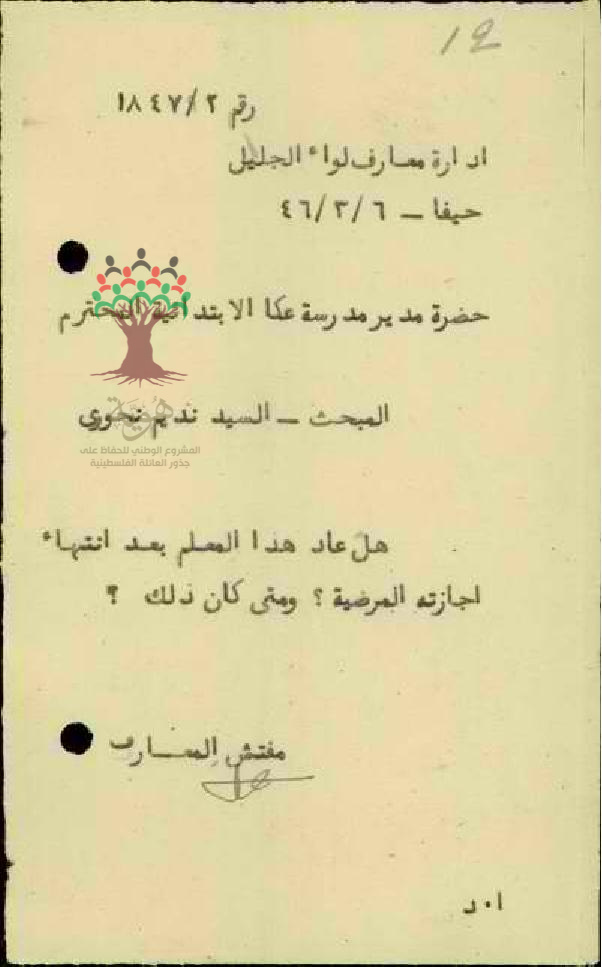 12
رقم ١٨٤٧/٢
ادارة معارف لواء الجليل
حيفا – ٤٦/٣/٦
حضرة مدير مدرسة عكا الابتدائية المحترم
المبحث – السيد نديم نحوي
هوية
المشروع الوطني للحفاظ على
جذور العائلة الفلسطينية
هل عاد هذا المعلم بعد انتهاء
اجازته المرضية ؟ ومتى كان ذلك ؟
مفتش المعارف
ا٠د